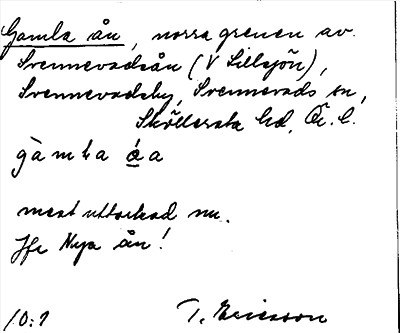 Gamla ån, norra grenen av
Svennevadsån (V Sillsjön),
Svennevadsby, Svennevads sn,
Sköllersta hd, Ör. l.
gàmḷa á̱a
mest uttorkad nu.
Jfr Nya ån!
10:9 T. Ericsson